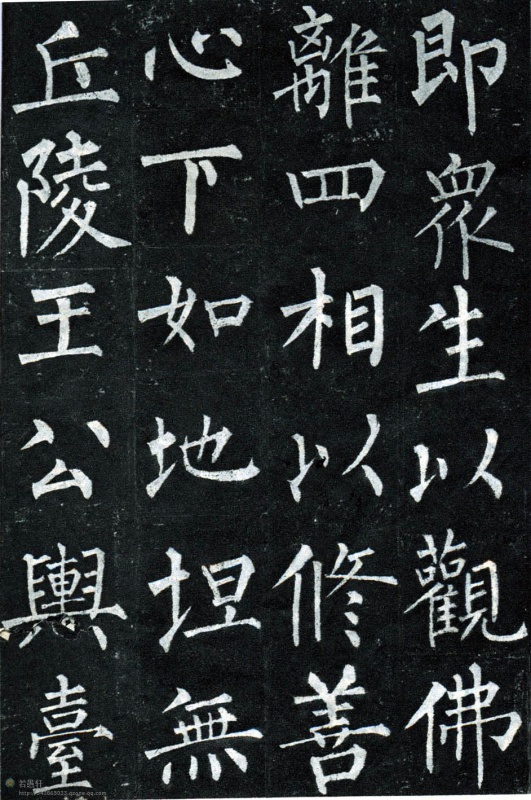 即衆生以觀佛
離四相以修善
心下如地坦無
丘陵王公輿臺
若愚轩